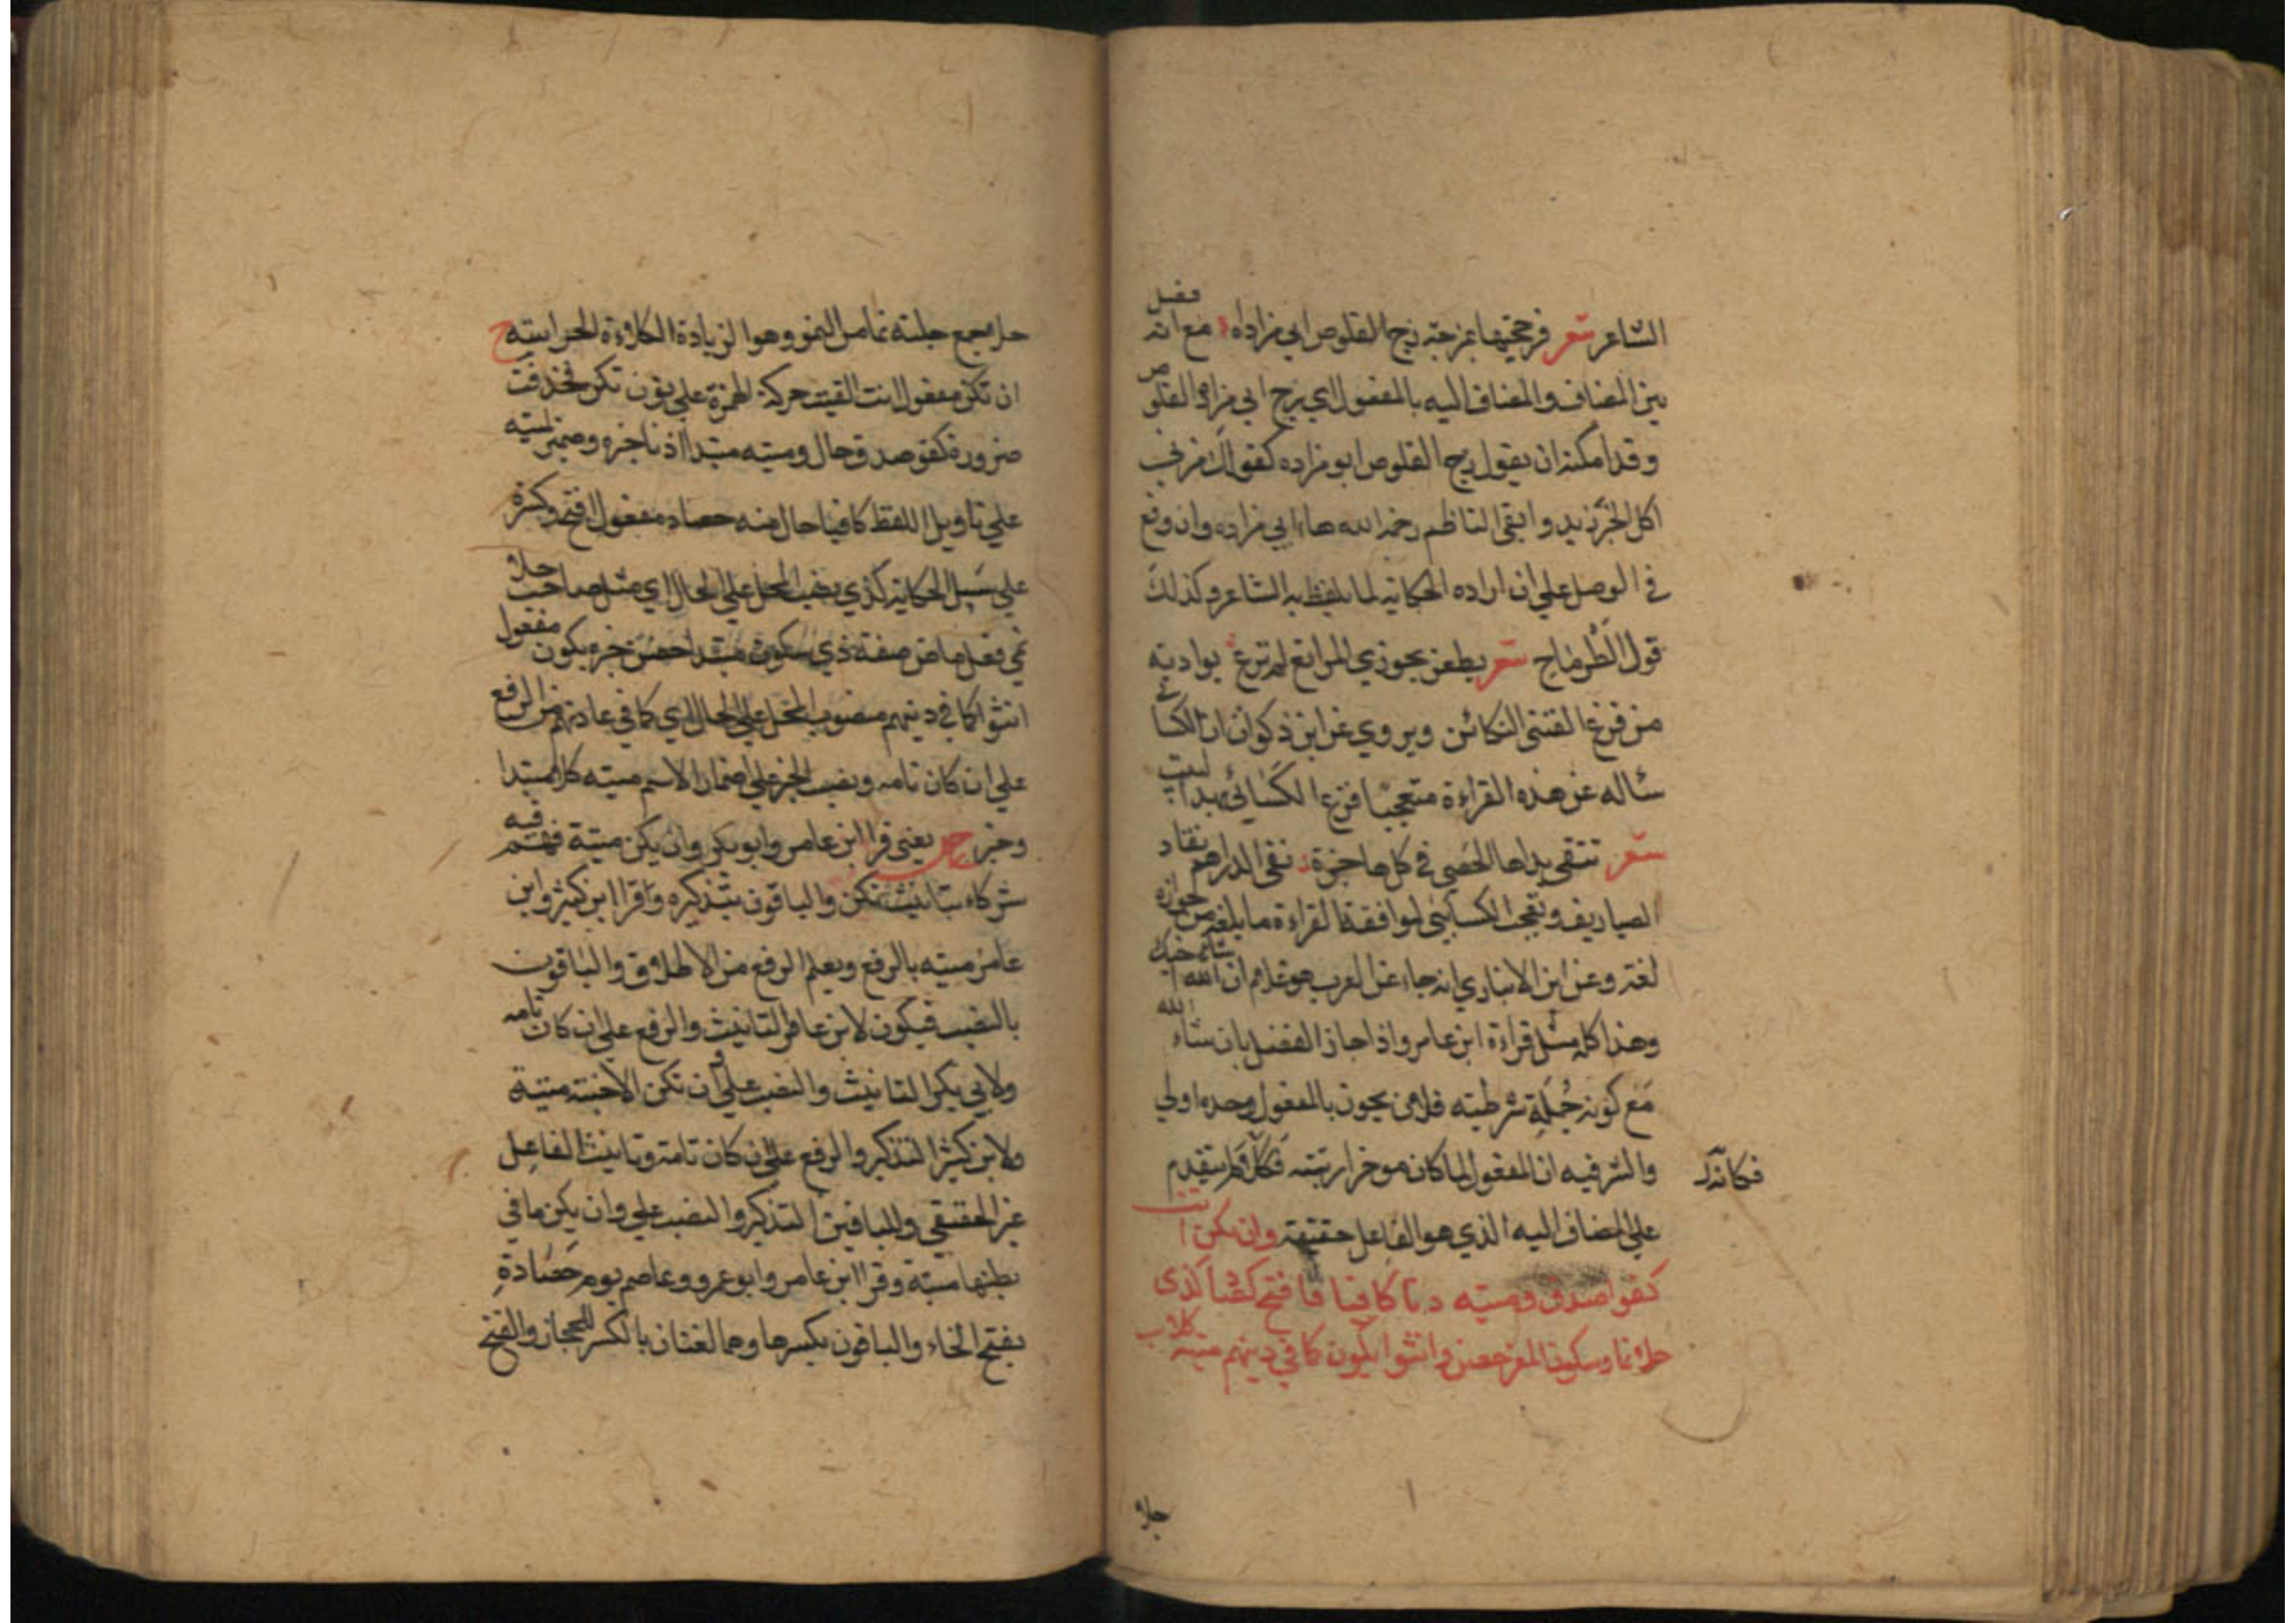 الشاعر شعر فزججتها بمزجة زج القلوص ابي مزاده مع انه فصل
بين المضاف والمضاف اليه بالمفعول اي زج ابي مزاده القلوص
وقد امكنه ان يقول زج القلوص ابو مزاده كقولك
اكل الخبز زيد وابقى الناظم رحمه الله هاء ابي مزاده وان وقع
في الوصل على ان اراده الحكاية لما يلفظ به الشاعر وكذلك
قول الطرماح شعر يطعن بحوزي المراتع لم ترع بواديه
من قرع القسي الكنائن ويروي عن ابن ذكوان ان الكسائي
سئاله عن هذه القراءة متعجبا فنزع الكسائي بهذا البيت
شعر تنقي يداها الحصى في كل هاجرة نفي الدراهم تنقاد
الصياريف وتعجب الكسائي لموافقة القراءة ما بلغه من جوازه
لغة وعن ابن الانباري انه جاء عن العرب هو غلام ان شاء الله اخيك
وهذا كله مثل قراءة ابن عامر واذا جاز الفصل بان شاء الله
مع كونه جملة شرطيته فلان يجوز بالمفعول وحده اولي
والسر فيه ان المفعول لما كان موخرا رتبته فكان لم يتقدم
فكانه
على المضاف اليه الذي هو الفاعل حقيقة وان تكن انث
كفو صدق وميته دنا كافيا فافتح حصاد كذي
حلا نما وسكون المعز حصن وانثوا يكون كما في دينهم ميته كلا
حلا
حلا جمع حلية نما من النمو وهو الزيادة الكلاءة الحراسة ح
ان تكن مفعول انث القيت حركة الهمزة على نون تكن فحذفت
ضرورة كفو صدق حال وميته مبتدا دنا خبره وضمير ميته
على تاويل اللفظ كافيا حال منه حصاد مفعول افتح وكسرة
على سبيل الحكاية كذي نصب المحل على الحال اي مثل صاحب حلا
نمي فعل ماض صفة ذي سكون مبتدا حصن خبره يكون مفعول
انثوا كما في دينهم منصوب المحل على الحال اي كما في عادتهم من الرفع
على ان كان تامه ونصب الخبر على اضمار الاسم ميته كلا مبتدا
وخبر ص يعني قرا ابن عامر وابو بكر وان يكن ميتة فهم فيه
شركاء بتانيث تكن والباقون بتذكيره وقرا ابن كثير وابن
عامر ميته بالرفع ويعلم الرفع من الاطلاق والباقون
بالنصب فيكون لابن عامر التانيث والرفع على ان كان تامه
ولابي بكر التانيث والنصب على وان تكن الاجنة ميتة
ولابن كثير التذكير والرفع على ان كان تامة وتانيث الفاعل
غير الحقيقي وللباقين التذكير والنصب على وان يكن ما في
بطنها ميتة وقرا ابن عامر وابو عمرو وعاصم يوم حصاده
بفتح الحاء والباقون بكسرها وهما لغتان بالكسر للحجاز والفتح